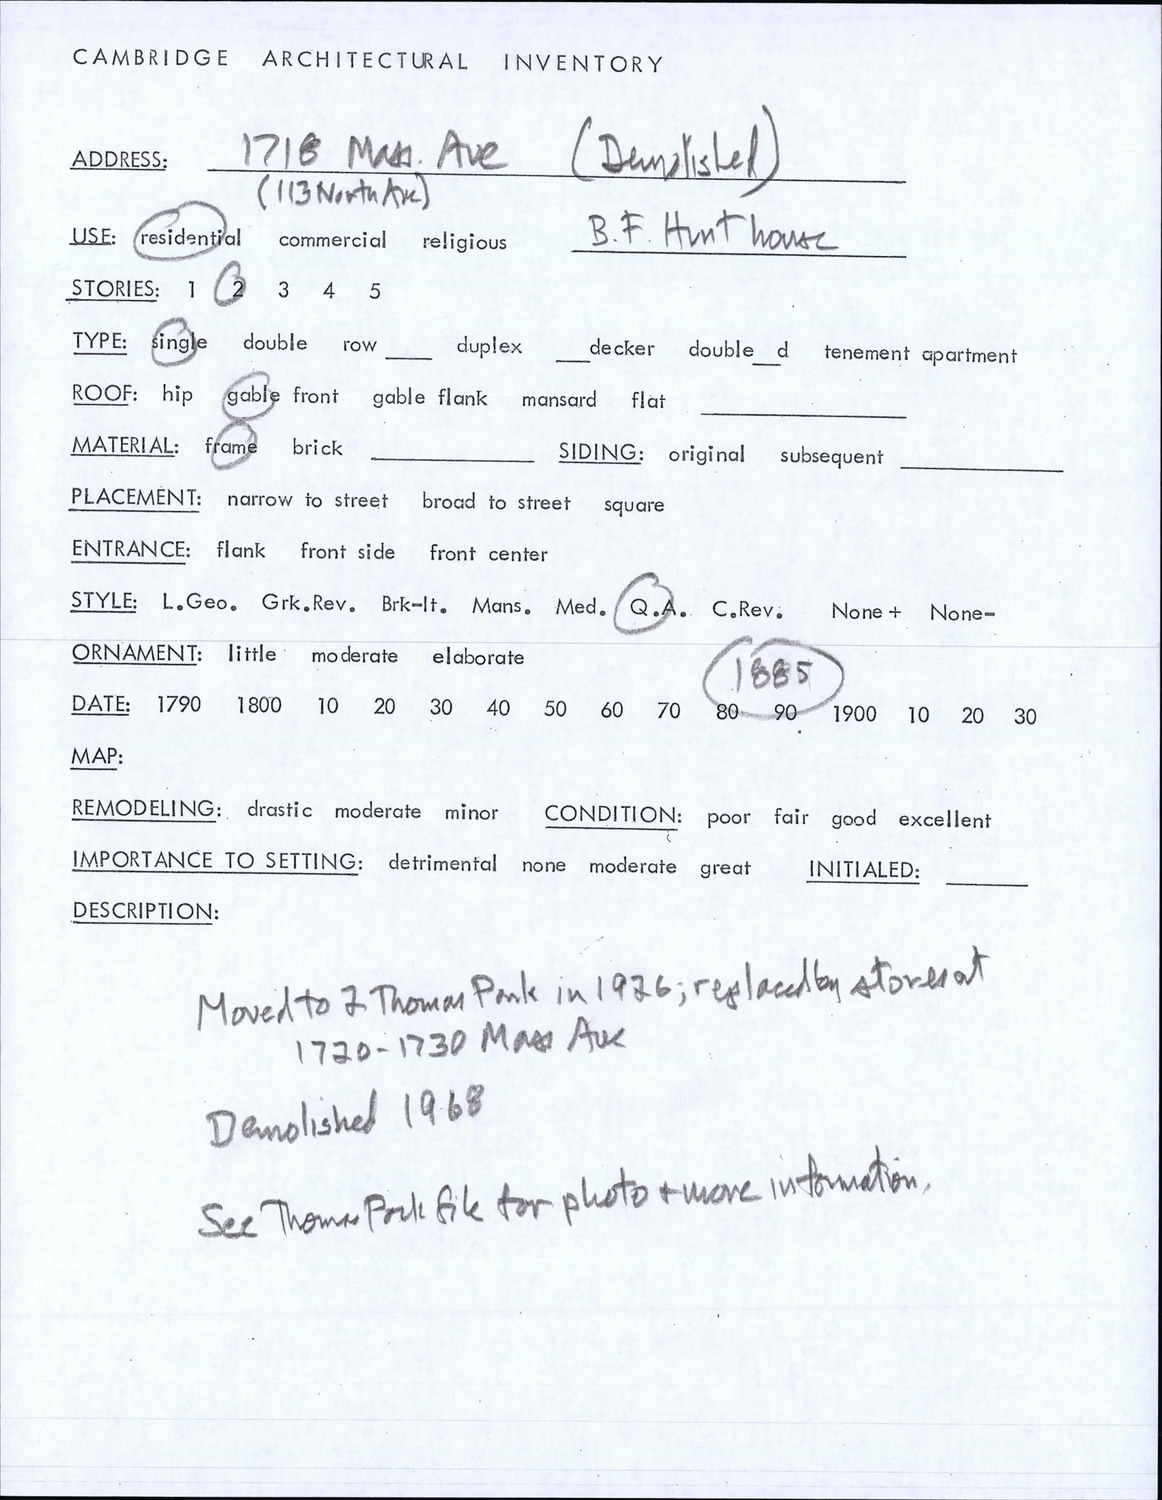 CAMBRIDGE ARCHITECTURAL INVENTORY
ADDRESS: 1718 Mass. Ave (Demolished)
(113 North Ave)
USE: residential commercial religious B.F. Hunt house
STORIES: 1 2 3 4 5
TYPE: single double row ____ duplex ___decker double__d tenement apartment
ROOF: hip gable front gable flank mansard flat ____
MATERIAL: frame brick ____ SIDING: original subsequent ____
PLACEMENT: narrow to street broad to street square
ENTRANCE: flank front side front center
STYLE: L.Geo. Grk.Rev. Brk-It. Mans. Med. Q.A. C.Rev. None+ None-
ORNAMENT: little moderate elaborate 1885
DATE: 1790 1800 10 20 30 40 50 60 70 80 90 1900 10 20 30
MAP:
REMODELING: drastic moderate minor CONDITION: poor fair good excellent
IMPORTANCE TO SETTING: detrimental none moderate great INITIALED: ____
DESCRIPTION:
Moved to 2 Thomas Park in 1926; replaced by stores at
1720-1730 Mass Ave
Demolished 1968
See Thomas Park file for photo + more information.